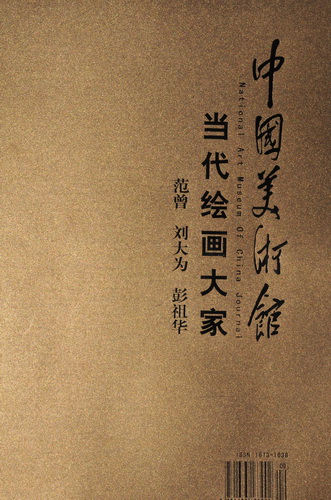 中國美術館
National Art Museum Of China Journal
当代绘画大家
范曾 刘大为 彭祖华
ISSN 1673-1638
09